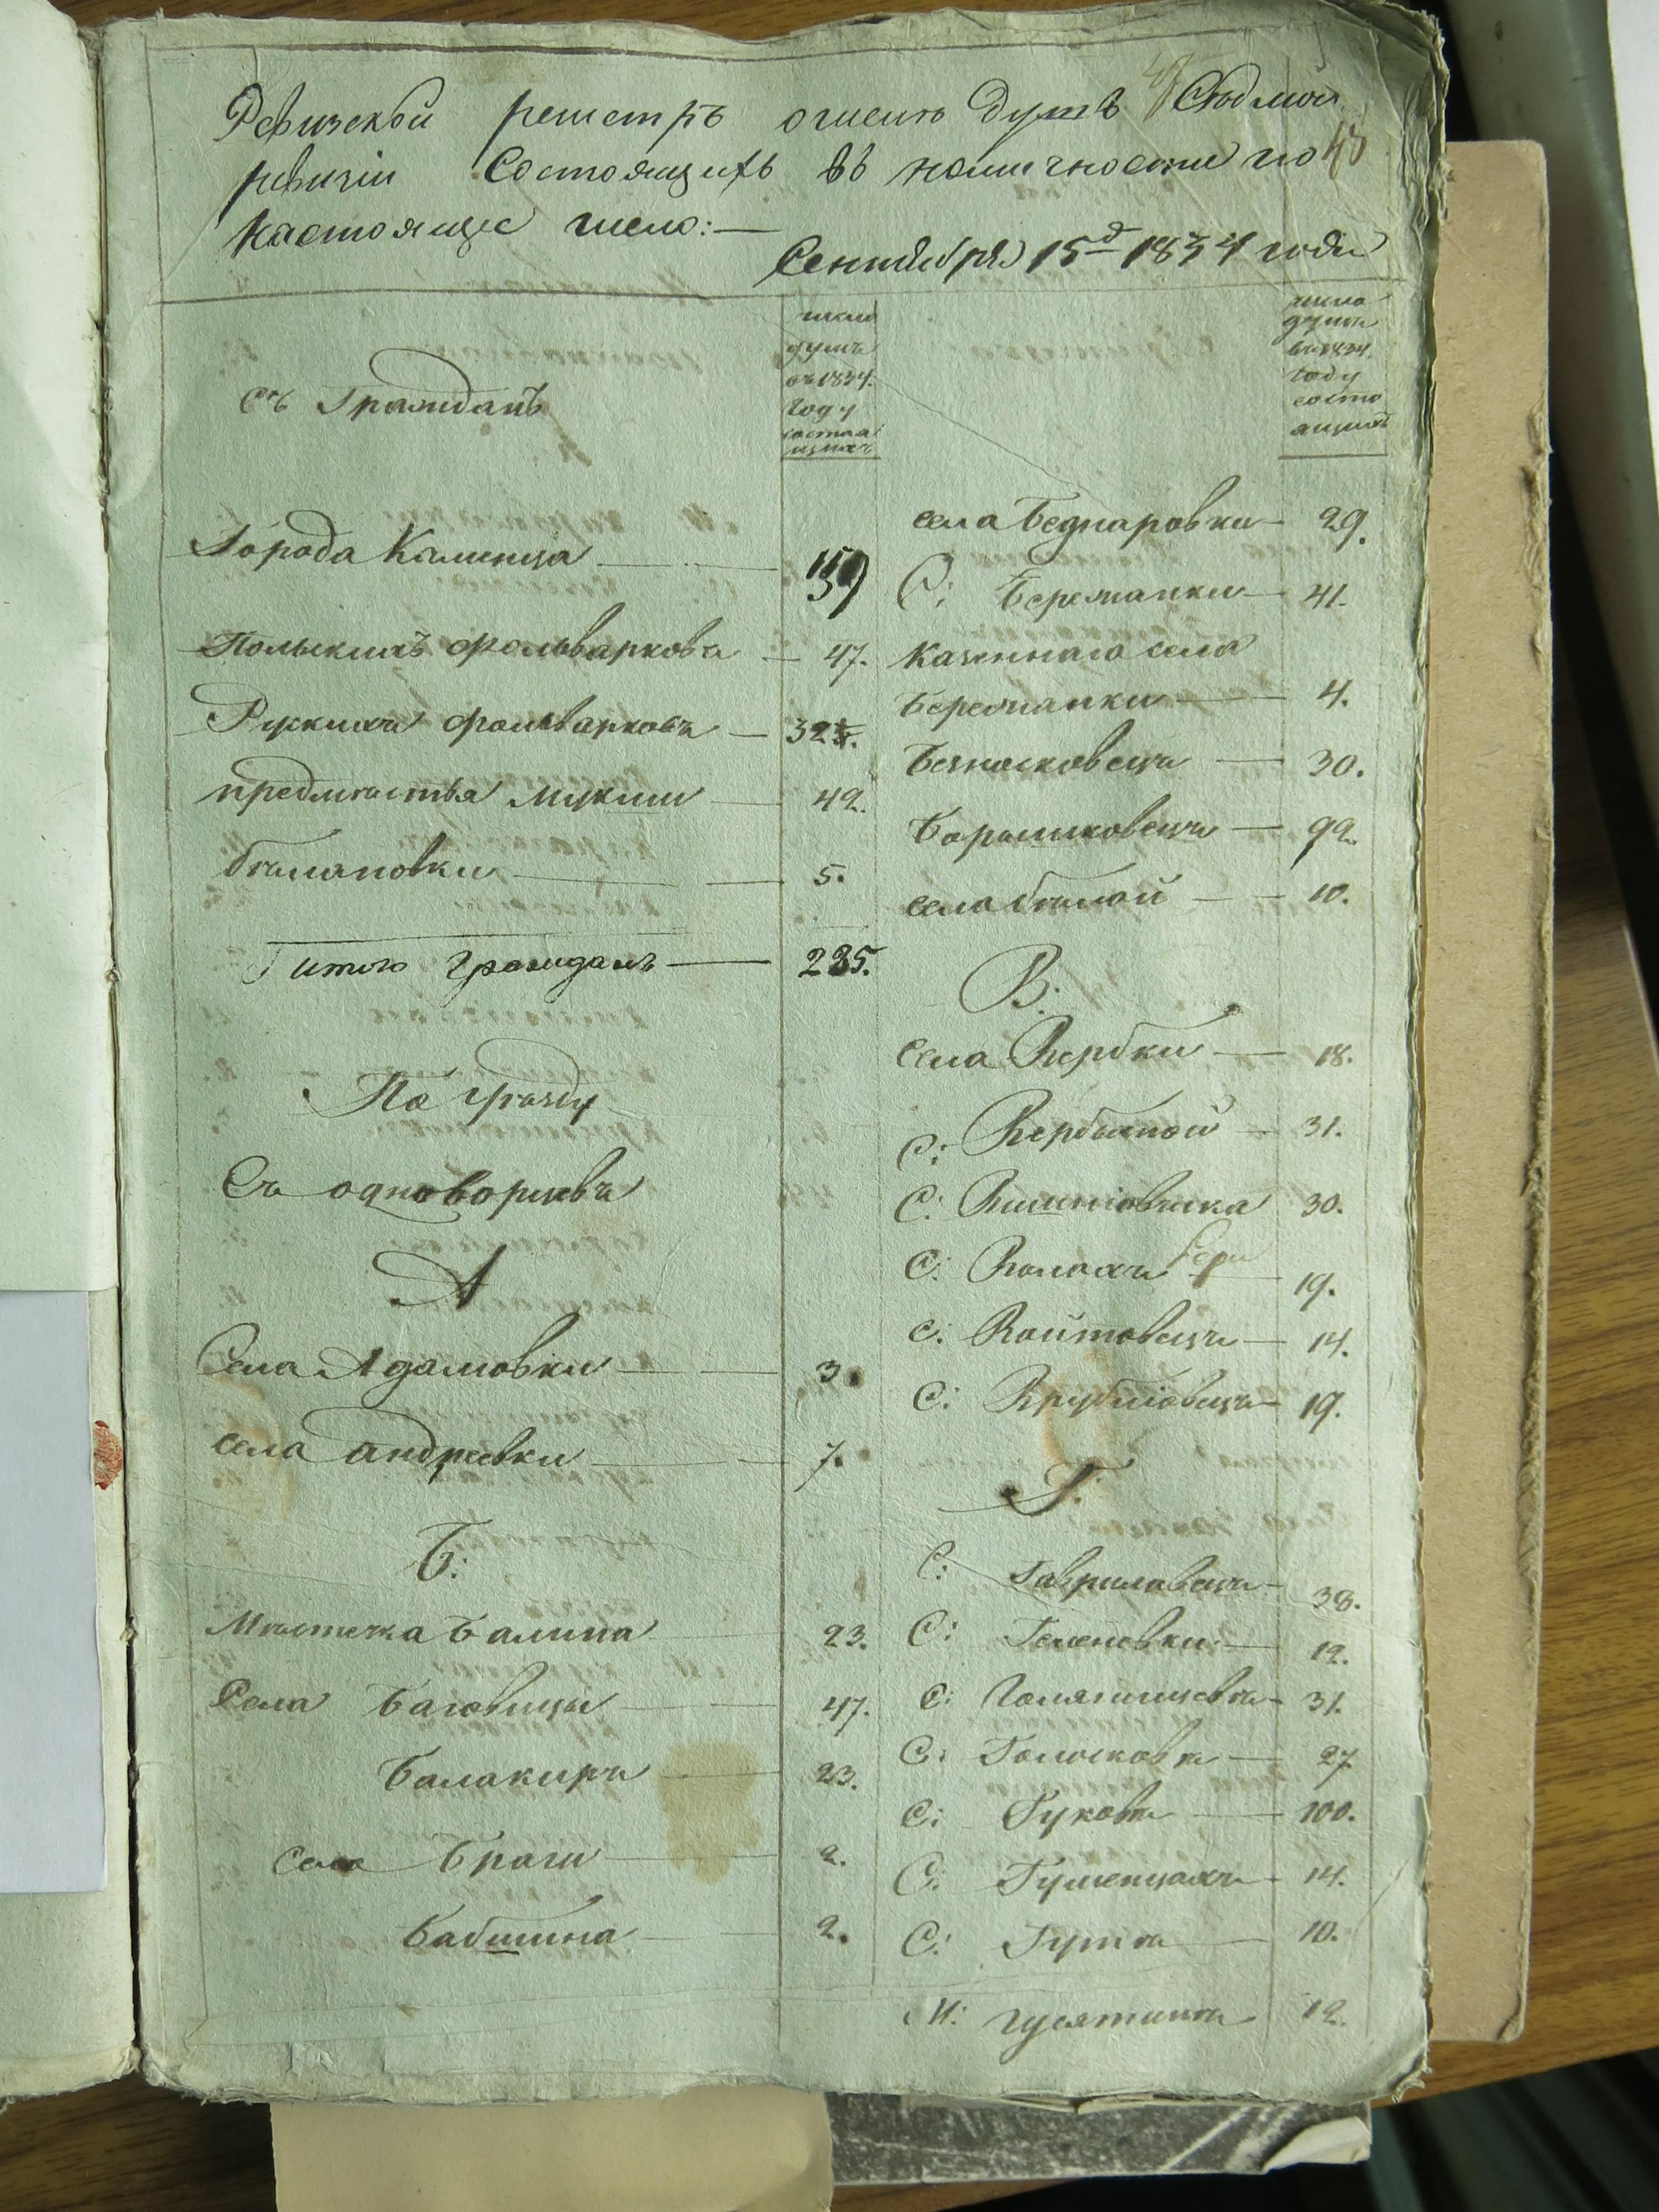 Ревизской регистръ очислѣ душъ Седмой
ревизіи Состоящихъ въ наличности по
48
настоящее число:—
Сентября 15д 1834 года
число
душъ
въ 1834.
году
состоя
щихъ
съ Гражданъ
Города Каменца — 159
Польскихъ фольварковъ — 47.
Руских фольварковъ — 32.
предмѣстья Мукши — 42.
бѣлановки — 5.
итого Гражданъ — 285.
По уѣзду
Съ однодворцовъ
А
Села Адамовки — 3.
села андреевки — 7.
Б:
Мѣстечка Балина 23.
Села Баговицы — 47.
Балакиръ — 23.
села Браги — 2.
Бабшина — 2.
число
душъ
въ 1834.
году
состо
ящихъ
села Беднаровки — 29.
С: Бережанки — 41.
Казеннаго села
Бережанки — 4.
Безносковецъ — 30.
Боришковецъ — 99.
села бѣлой — 10.
В:
села Вербки — 18.
С: Вербецкой — 31.
С: Вишніовчика 30.
С: Волохъ — 19.
С: Войтовецъ — 14.
С: Врублiовецъ — 19.
Г:
С: Гавриловецъ — 38.
С: Геленовки — 12.
С: 31.
С: Голосковъ — 27
С: Гукова — 100.
С: Гуменцахъ — 14.
С: Гутъ — 10.
М: гусятинъ 12.